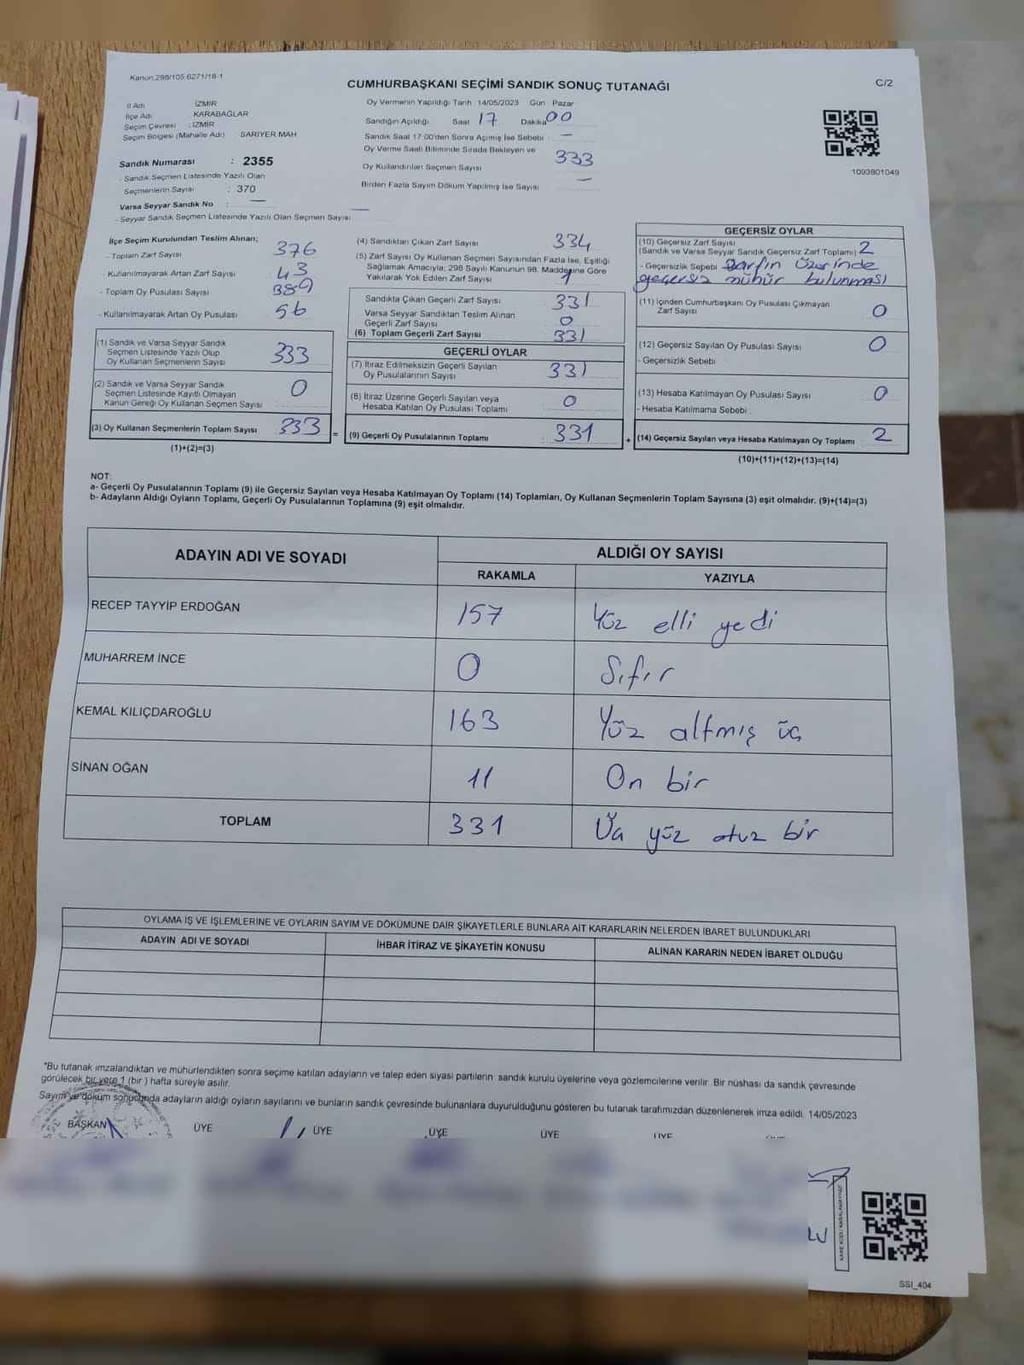 Kanun:298/105 6271/18-1
CUMHURBAŞKANI SEÇİMİ SANDIK SONUÇ TUTANAĞI
C/2
İl Adı : İZMİR
İlçe Adı : KARABAĞLAR
Seçim Çevresi : İZMİR
Seçim Bölgesi (Mahalle Adı) : SARIYER MAH
Sandık Numarası : 2355
- Sandık Seçmen Listesinde Yazılı Olan
Seçmenlerin Sayısı : 370
Varsa Seyyar Sandık No : —
- Seyyar Sandık Seçmen Listesinde Yazılı Olan Seçmen Sayısı : —
Oy Vermenin Yapıldığı Tarih : 14/05/2023 Gün : Pazar
Sandığın Açıldığı Saat 17 Dakika 00
Sandık Saat 17:00'den Sonra Açılmış İse Sebebi : —
Oy Verme Saati Bitiminde Sırada Bekleyen ve
Oy Kullandırılan Seçmen Sayısı : 333
Birden Fazla Sayım Döküm Yapılmış İse Sayısı : —
1093801049
İlçe Seçim Kurulundan Teslim Alınan;
- Toplam Zarf Sayısı : 376
- Kullanılmayarak Artan Zarf Sayısı : 43
- Toplam Oy Pusulası Sayısı : 389
- Kullanılmayarak Artan Oy Pusulası : 56
(1) Sandık ve Varsa Seyyar Sandık
Seçmen Listesinde Yazılı Olup
Oy Kullanan Seçmenlerin Sayısı : 333
(2) Sandık ve Varsa Seyyar Sandık
Seçmen Listesinde Kayıtlı Olmayan
Kanun Gereği Oy Kullanan Seçmen Sayısı : 0
(3) Oy Kullanan Seçmenlerin Toplam Sayısı : 333
(1)+(2)=(3)
(4) Sandıktan Çıkan Zarf Sayısı : 334
(5) Zarf Sayısı Oy Kullanan Seçmen Sayısından Fazla İse, Eşitliği
Sağlamak Amacıyla; 298 Sayılı Kanunun 98. Maddesine Göre
Yakılarak Yok Edilen Zarf Sayısı : 1
Sandıkta Çıkan Geçerli Zarf Sayısı : 331
Varsa Seyyar Sandıktan Teslim Alınan
Geçerli Zarf Sayısı : 0
(6) Toplam Geçerli Zarf Sayısı : 331
GEÇERLİ OYLAR
(7) İtiraz Edilmeksizin Geçerli Sayılan
Oy Pusulalarının Sayısı : 331
(8) İtiraz Üzerine Geçerli Sayılan veya
Hesaba Katılan Oy Pusulası Toplamı : 0
=
(9) Geçerli Oy Pusulalarının Toplamı : 331
+
GEÇERSİZ OYLAR
(10) Geçersiz Zarf Sayısı
(Sandık ve Varsa Seyyar Sandık Geçersiz Zarf Toplamı) : 2
- Geçersizlik Sebebi : Zarfın üzerinde
geçersiz mühür bulunması
(11) İçinden Cumhurbaşkanı Oy Pusulası Çıkmayan
Zarf Sayısı : 0
(12) Geçersiz Sayılan Oy Pusulası Sayısı : 0
- Geçersizlik Sebebi :
(13) Hesaba Katılmayan Oy Pusulası Sayısı : 0
- Hesaba Katılmama Sebebi :
(14) Geçersiz Sayılan veya Hesaba Katılmayan Oy Toplamı : 2
(10)+(11)+(12)+(13)=(14)
NOT:
a- Geçerli Oy Pusulalarının Toplamı (9) ile Geçersiz Sayılan veya Hesaba Katılmayan Oy Toplamı (14) Toplamları, Oy Kullanan Seçmenlerin Toplam Sayısına (3) eşit olmalıdır. (9)+(14)=(3)
b- Adayların Aldığı Oyların Toplamı, Geçerli Oy Pusulalarının Toplamına (9) eşit olmalıdır.
ADAYIN ADI VE SOYADI
ALDIĞI OY SAYISI
RAKAMLA
YAZIYLA
RECEP TAYYİP ERDOĞAN 157 Yüz elli yedi
MUHARREM İNCE 0 Sıfır
KEMAL KILIÇDAROĞLU 163 Yüz altmış üç
SİNAN OĞAN 11 On bir
TOPLAM 331 yüz otuz bir
OYLAMA İŞ VE İŞLEMLERİNE VE OYLARIN SAYIM VE DÖKÜMÜNE DAİR ŞİKAYETLERLE BUNLARA AİT KARARLARIN NELERDEN İBARET BULUNDUKLARI
ADAYIN ADI VE SOYADI
İHBAR İTİRAZ VE ŞİKAYETİN KONUSU
ALINAN KARARIN NEDEN İBARET OLDUĞU
*Bu tutanak imzalandıktan ve mühürlendikten sonra seçime katılan adayların ve talep eden siyasi partilerin sandık kurulu üyelerine veya gözlemcilerine verilir. Bir nüshası da sandık çevresinde
görülecek bir yere 1 (bir) hafta süreyle asılır.
Sayım ve döküm sonucunda adayların aldığı oyların sayılarını ve bunların sandık çevresinde bulunanlara duyurulduğunu gösteren bu tutanak tarafımızdan düzenlenerek imza edildi. 14/05/2023
BAŞKAN ÜYE ÜYE ÜYE ÜYE ÜYE
SSI_404